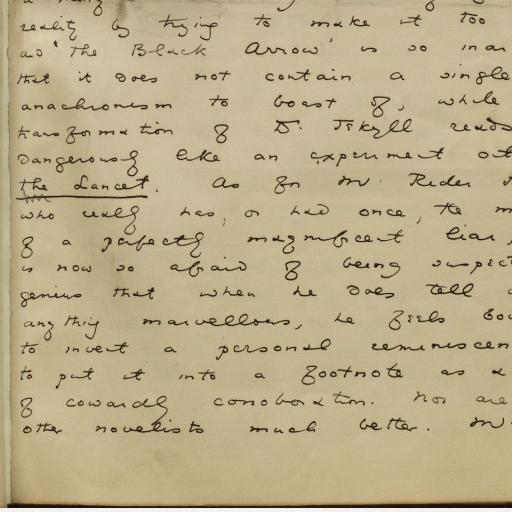 reality by trying to make it too
as 'The Black Arrow' is so inar
that it does not contain a single
anachronism to boast of, while
transformation of Dr. Jekyll reads
dangerously like an experiment out
the Lancet. As for Mr. Rider
who really has, or had once, the m
of a perfectly magnificent liar,
is now so afraid of being suspect
genius that when he does tell
anything marvellous, he feels bou
to invent a personal reminiscen
to put it into a footnote as a
of cowardly corroboration. Nor are
other novelists much better. Mr